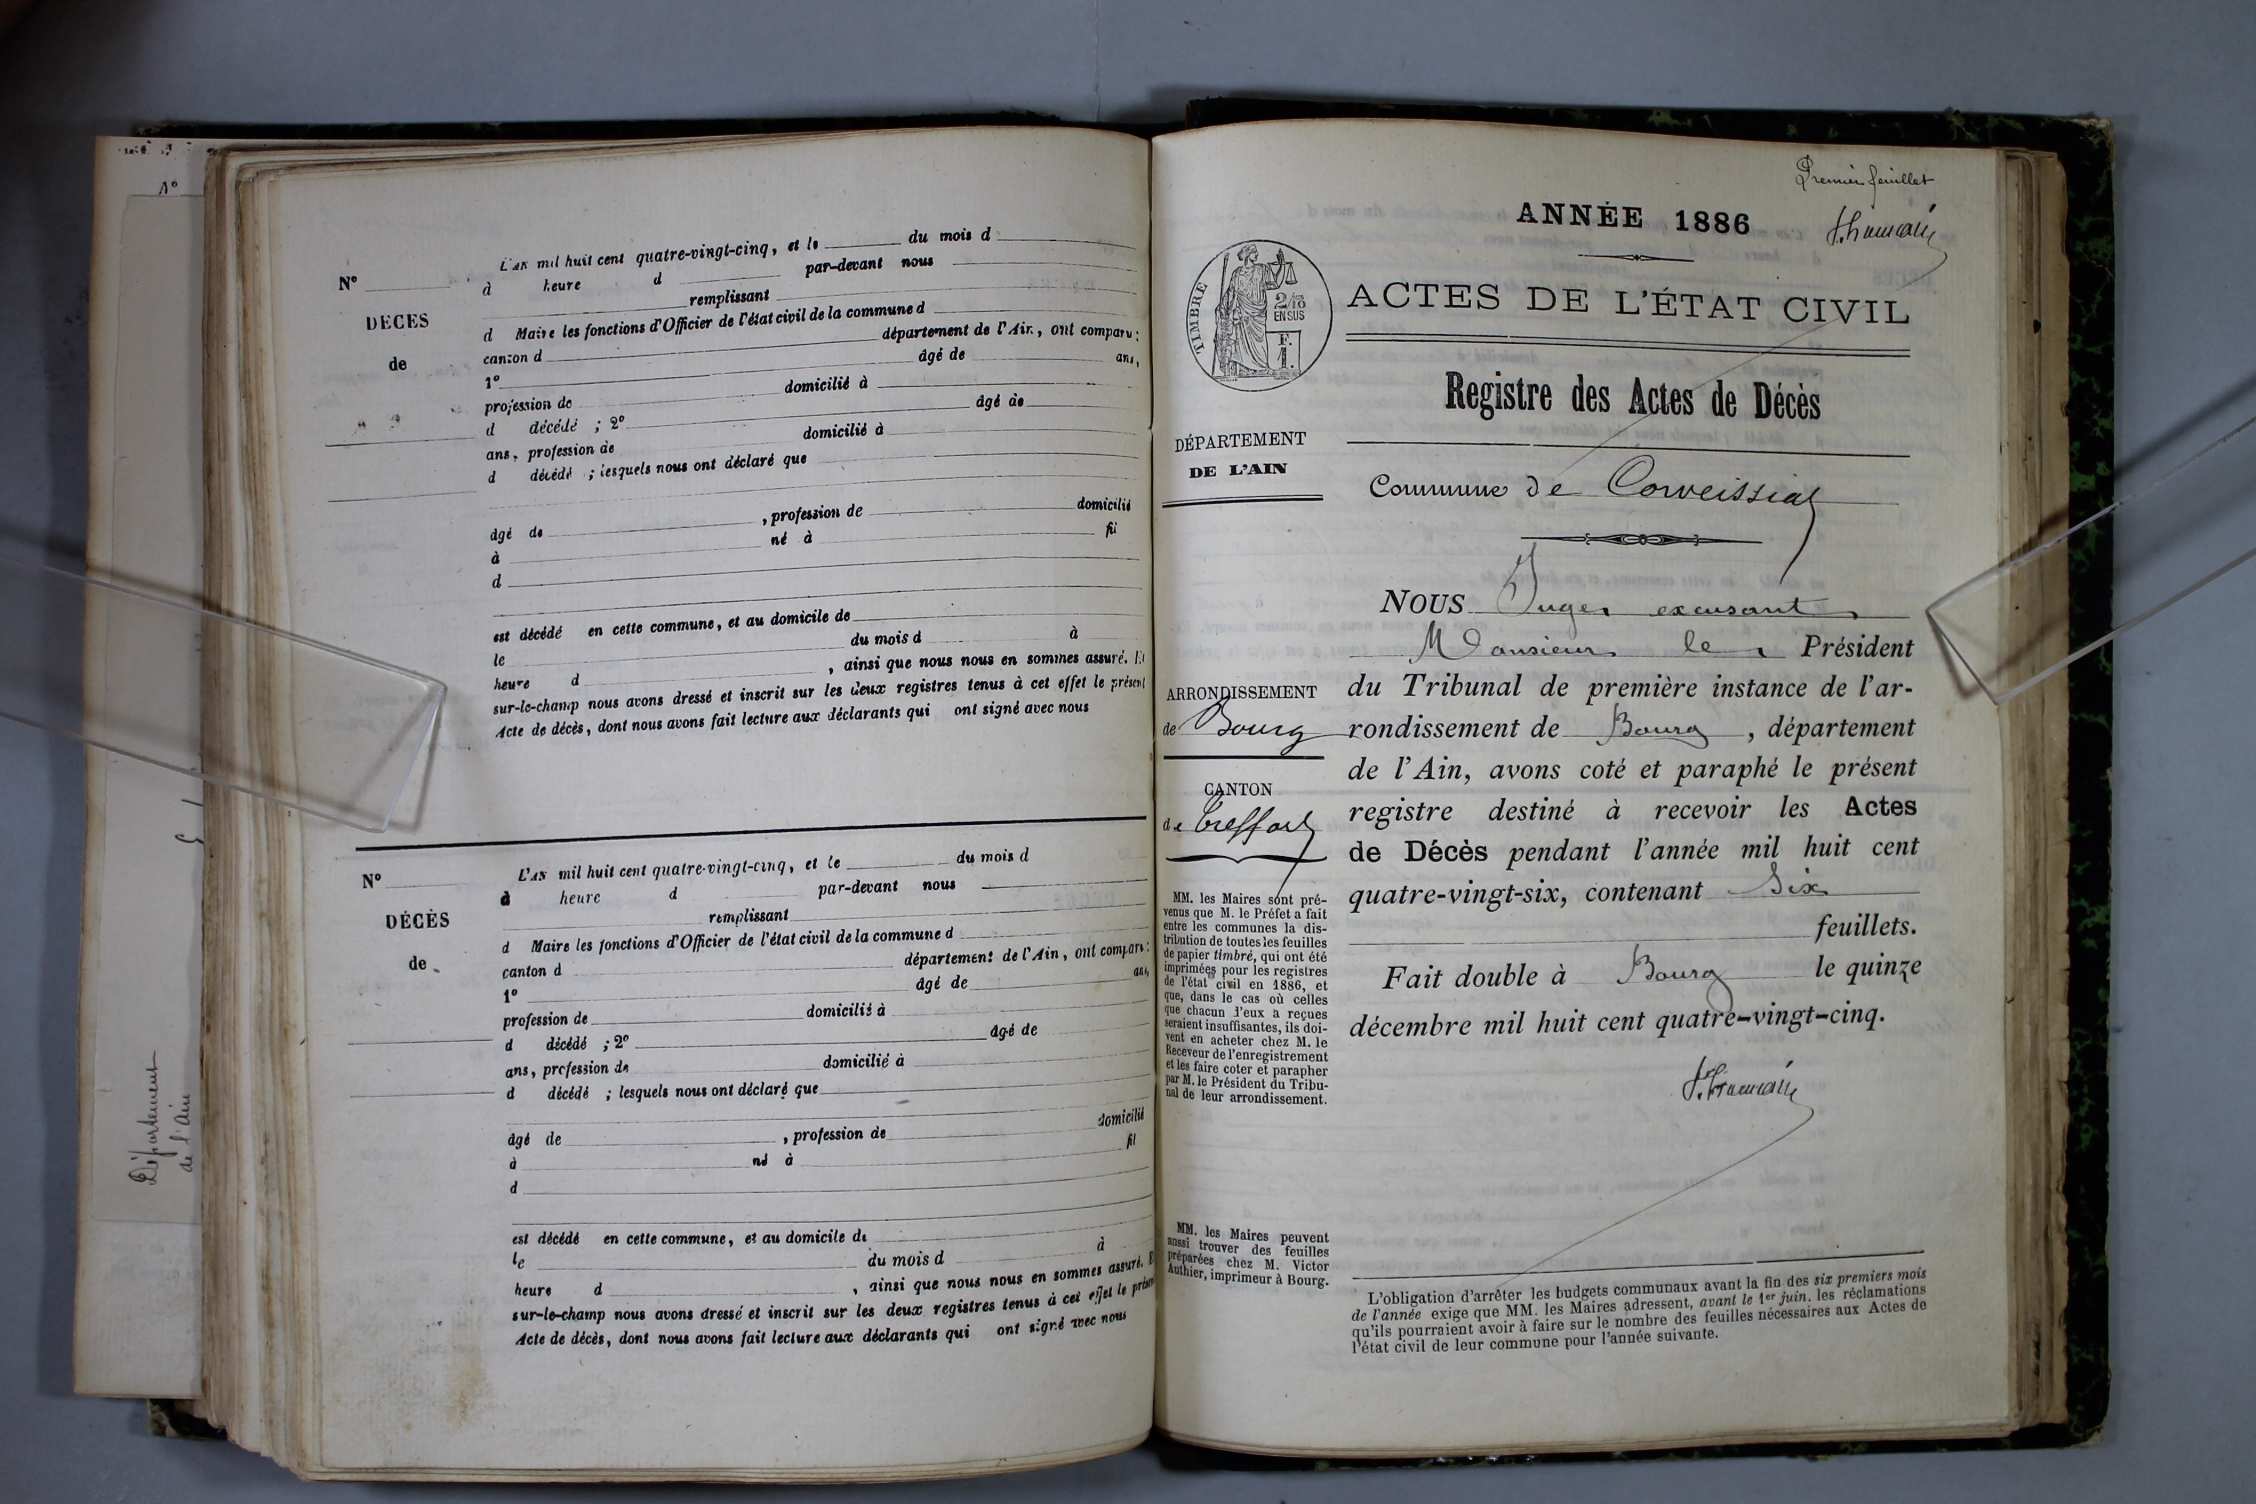 N°
DÉCÈS
de
L'AN mil huit cent quatre-vingt-cinq, et le du mois d
à heure d par-devant nous
remplissant
d Maire les fonctions d'Officier de l'état civil de la commune d
canton d département de l'Ain, ont comparu:
1° âgé de ans,
profession de domicilié à
d décédé ; 2° âgé de
ans, profession de domicilié à
d décédé ; lesquels nous ont déclaré que
âgé de , profession de domicilié
à né à fil
d
est décédé en cette commune, et au domicile de
le du mois d à
heure d , ainsi que nous nous en sommes assuré. Et
sur-le-champ nous avons dressé et inscrit sur les deux registres tenus à cet effet le présent
Acte de décès, dont nous avons fait lecture aux déclarants qui ont signé avec nous
N°
DÉCÈS
de
L'AN mil huit cent quatre-vingt-cinq, et le du mois d
à heure d par-devant nous
remplissant
d Maire les fonctions d'Officier de l'état civil de la commune d
canton d département de l'Ain, ont comparu:
1° âgé de ans,
profession de domicilié à
d décédé ; 2° âgé de
ans, profession de domicilié à
d décédé ; lesquels nous ont déclaré que
âgé de , profession de domicilié
à né à fil
d
est décédé en cette commune, et au domicile de
le du mois d à
heure d , ainsi que nous nous en sommes assuré. E
sur-le-champ nous avons dressé et inscrit sur les deux registres tenus à cet effet le présen
Acte de décès, dont nous avons fait lecture aux déclarants qui ont signé avec nous
Département
de l'Ain
Premier feuillet
ANNÉE 1886
TIMBRE
2/10
EN SUS
F.
1.
ACTES DE L'ÉTAT CIVIL
Registre des Actes de Décès
DÉPARTEMENT
DE L'AIN
Commune de Corveissiat
NOUS Juge excusant
Monsieur le Président
du Tribunal de première instance de l'ar-
rondissement de Bourg, département
de l'Ain, avons coté et paraphé le présent
registre destiné à recevoir les Actes
de Décès pendant l'année mil huit cent
quatre-vingt-six, contenant Six
feuillets.
Fait double à Bourg le quinze
décembre mil huit cent quatre-vingt-cinq.
ARRONDISSEMENT
de Bourg
CANTON
de Treffort
MM. les Maires sont pré-
venus que M. le Préfet a fait
entre les communes la dis-
tribution de toutes les feuilles
de papier timbré, qui ont été
imprimées pour les registres
de l'état civil en 1886, et
que, dans le cas où celles
que chacun d'eux a reçues
seraient insuffisantes, ils doi-
vent en acheter chez M. le
Receveur de l'enregistrement
et les faire coter et parapher
par M. le Président du Tribu-
nal de leur arrondissement.
MM. les Maires peuvent
aussi trouver des feuilles
préparées chez M. Victor
Authier, imprimeur à Bourg.
L'obligation d'arrêter les budgets communaux avant la fin des six premiers mois
de l'année exige que MM. les Maires adressent, avant le 1er juin, les réclamations
qu'ils pourraient avoir à faire sur le nombre des feuilles nécessaires aux Actes de
l'état civil de leur commune pour l'année suivante.